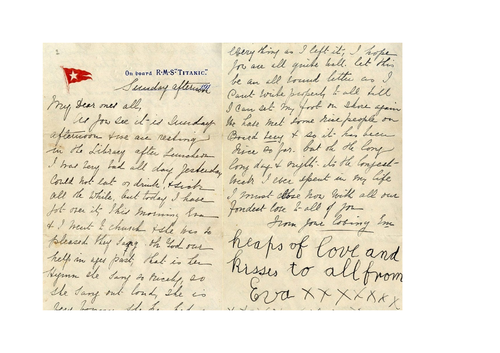 2
On board R.M.S. "TITANIC."
Sunday afternoon
My Dear ones all,
As you see it is Sunday
afternoon & we are resting
in the Library after Luncheon
I was very bad all day yesterday
Could not eat or drink, & sick
all the while, but today I have
got over it This morning Eva
& I went to church & she was so
pleased they sang Oh God our
help in ages past, that is her
Hymn she sang so nicely, so
she sang out loudly, she is
very
everything as I left it, I hope
you are all quite well let this
be an all round letter as I
Cant write properly to all till
I can set my foot on shore again
We have met some nice people on
Board & so it has been
nice so far. but oh the long
long days & nights its the longest
I ever spent in my life
I must close Now With all our
fondest love to all of you
From your loving
heaps of love and
kisses to all from
Eva x x x x x x x